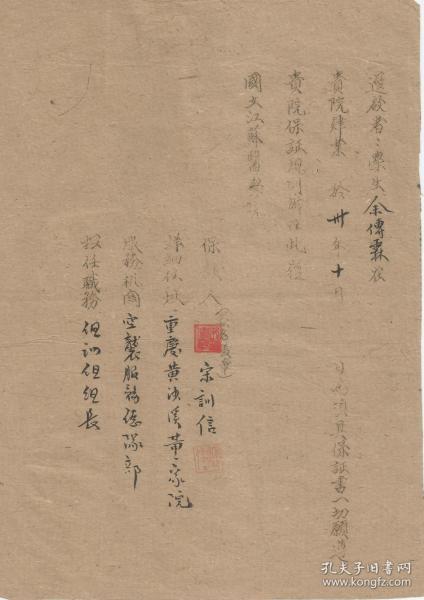 逕啟者：學生余傳霖在
貴院肄業 於卅年十月 日 須具保証書一切願遵
貴院保証規則辦理此致
國立江蘇醫學院
保証人（簽名蓋章）宋訓信
詳細住址 重慶黄沙溪黄家院
服務機關 空襲服務總隊部
担任職務 組訓組組長
孔夫子旧书网
www.kongfz.com